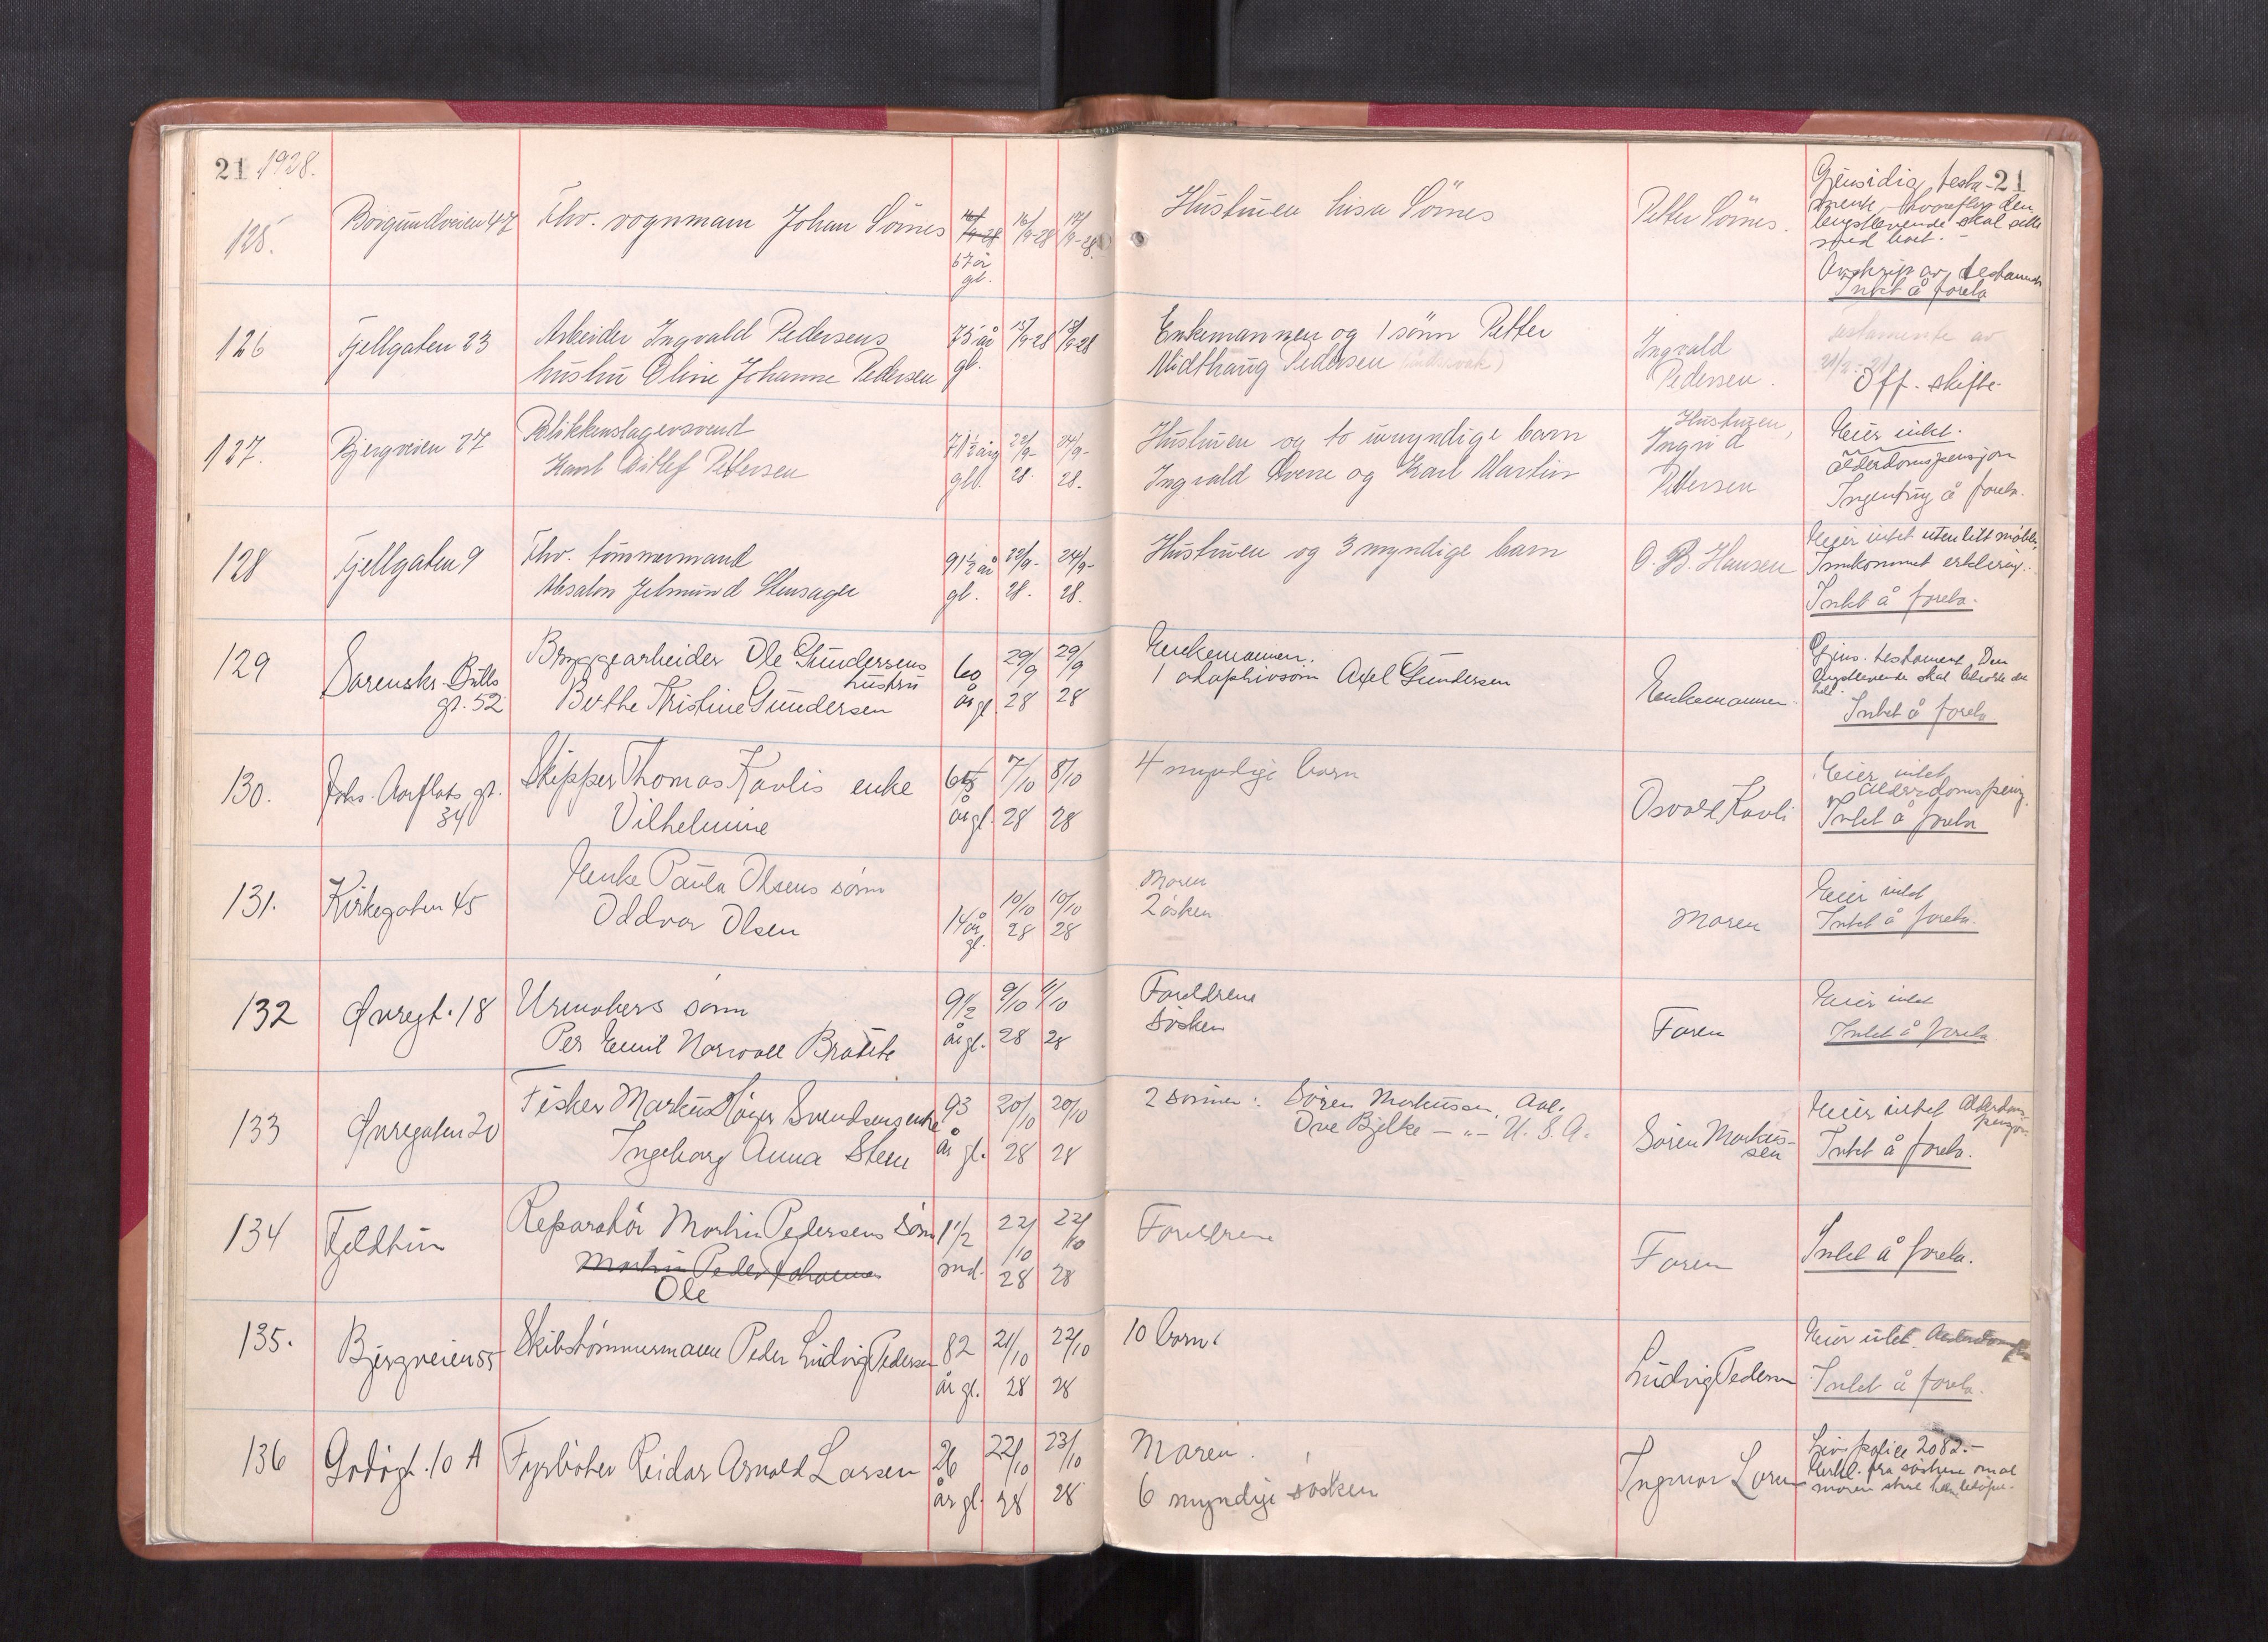 21 1928.
21
125.
Borgundveien 47
Fhv. vognmann Johan Sörnes
67 år
gl.
16/9-28
17/9-28
Hustruen Lisa Sörnes
Petter Sörnes.
Gjensidig testa-
ment, hvorefter den
lengstlevende skal sitte
med boet.-
Avskrift av testament
Intet å foreta
126
Fjellgaten 23
Arbeider Ingvald Pedersens
hustru Oline Johanne Pedersen
75 år
gl.
17/9-28
18/9-28
Enkemannen og 1 sönn Petter
Midthaug Pedersen
Ingvald
Pedersen.
testamente av
21/2-21
Off. skifte
127.
Bjergveien 27
Blikkenslagersvend
Karl Ditlef Pettersen
71½ årg
gl.
22/9-
28.
24/9-
28.
Hustruen og to umyndige barn
Ingvald Sverre og Karl Martin
Hustruen,
Ingrid
Pettersen
Eier intet.
alderdomspensjon
Ingenting å foreta.
128
Fjellgaten 9
Fhv. tömmermand
Absalon Jetmund Stensager
91½ år
gl.
22/9-
28.
24/9-
28.
Hustruen og 3 myndige barn
O. B. Hansen
Eier intet uten litt möbler
Innkommet erklæring.
Intet å foreta.
129
Sorenskr. Bulls
gt. 52
Bryggearbeider Ole Gundersens
hustru
Berthe Kristine Gundersen
60
år gl
29/9
28
29/9
28
Enkemannen.
1 adoptivsönn Axel Gundersen
Enkemannen
Gjens. testament. Den
lengstlevende skal beholde alt
Intet å foreta
130.
Johs. Aarflots gt.
34
Skipper Thomas Kavlis enke
Vilhelmine
år gl.
7/10
28
8/10
28
4 myndige barn
Osvald Kavli
Eier intet
Alderdomspensj.
Intet å foreta
131.
Kirkegaten 45
Enke Paula Olsens sönn
Oddvar Olsen
14 år
gl.
10/10
28
10/10
28
Moren
2 sösken
Moren
Eier intet
Intet å foreta.
132
Övregt. 18
Urmakers sönn
Per Emil Norvall Brattle
9½
år gl.
9/10
28
9/10
28
Foreldrene
Sösken
Faren
Eier intet
Intet å foreta
133
Övregaten 20
Fisker Markus Höyer Svendsens enke
Ingeborg Anna Steen
93
år gl.
20/10
28
20/10
28
2 sönner: Sören Markussen, Aal.
Ove Bjelke -"- U. S. A.
Sören Markus-
sen
Eier intet Alderdoms
pensjon
Intet å foreta.
134
Fjeldtun
Reparatör Martin Pedersens sönn
Martin Peder Johannes
Ole
1½
md.
22/10
28
22/10
28
Foreldrene
Faren
Intet å foreta.
135.
Bjergveien 55
Skibstömmermann Peder Ludvig Pedersen
82
år gl.
21/10
28
22/10
28
10 barn
Ludvig Pedersen
Eier intet.
Intet å foreta.
136
Godögt. 10 A
Fyrböter Reidar Arnold Larsen
26
år gl.
22/10
28
23/10
28
Moren.
6 myndige sösken
Ingvar Larsen
Livspolice 2082.-
Erkl. fra söskene om at
moren skal ha belöpet.